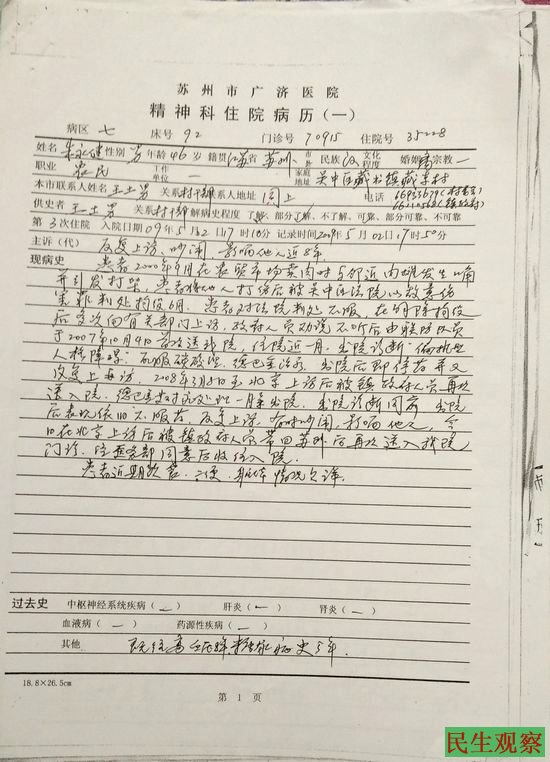 苏州市广济医院
精神科住院病历(一)
病区 七 床号 92 门诊号 70915 住院号 35228
姓名 性别 男 年龄 46岁 籍贯 江苏省 苏州 市 民族 汉 文化程度 婚姻 宗教 一
职业 农民 工作单位 一 家庭地址 吴中区藏书镇藏东村
本市联系人姓名 王土男 关系 村干部 联系人地址 同上 电话
供史者 王土男 关系 村干部 了解病史程度 了解、部分了解、不了解、可靠、部分可靠、不可靠
第3次住院 入院日期09年5月2日17时10分 记录时间2009年5月02日17时50分
主诉(代) 反复上访,吵闹,影响他人近8年.
现病史 患者2000年9月在农贸市场买肉时与邻近肉摊发生口角
并引发打架,患者将他人打伤后被吴中区法院以故意伤
害罪判处拘役6月.患者对法院判处不服,在解除拘役
后多次向有关部门上访,政府人员劝说不听后由联防队员
于2007年10月9日首次送我院,住院近一月.出院诊断:偏执性
人格障碍.不服碳酸锂、治疗,出院后即停药并又
反复上访,2008年3月 日至北京上访后被镇政府人员再次
送入院.一月余出院.出院诊断同前,出院
后表现依旧,不服药,反复上访,有时吵闹,影响他人,今
日在北京上访后被镇政府人员带回苏州后再次送入我院
门诊.同意后收住入院.
患者近期饮食、二便、躯体情况欠详.
过去史 中枢神经系统疾病(一) 肝炎(一) 肾炎(一)
血液病(一) 药源性疾病(一)
其他 糖尿病史3年.
18.8×26.5cm
第 1 页
民生观察